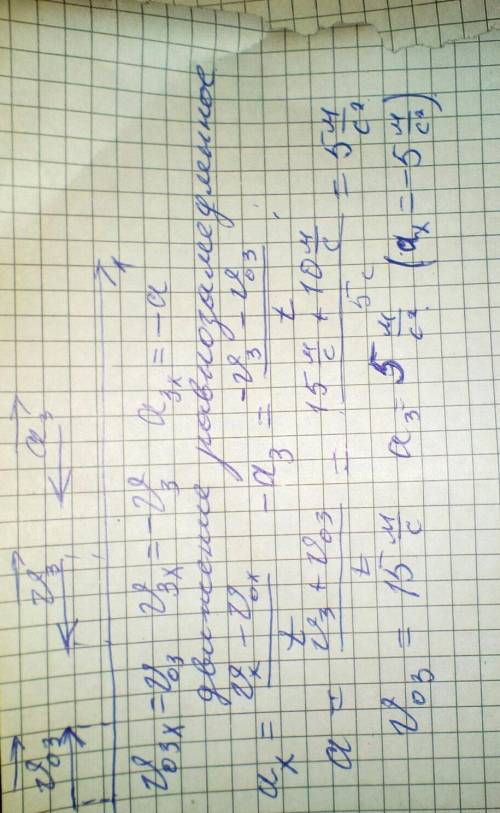 v⃗₀₃ v⃗₃ a⃗₃
x
v₀₃ₓ = v₀₃ v₃ₓ = -v₃ a₃ₓ = -a
движение равнозамедленное
aₓ = (vₓ - v₀ₓ)/t -a₃ = (-v₃ - v₀₃)/t
a = (v₃ + v₀₃)/t = (15 м/с + 10 м/с)/5 с = 5 м/с²
v₀₃ = 15 м/с a₃ = 5 м/с² (aₓ = -5 м/с²)